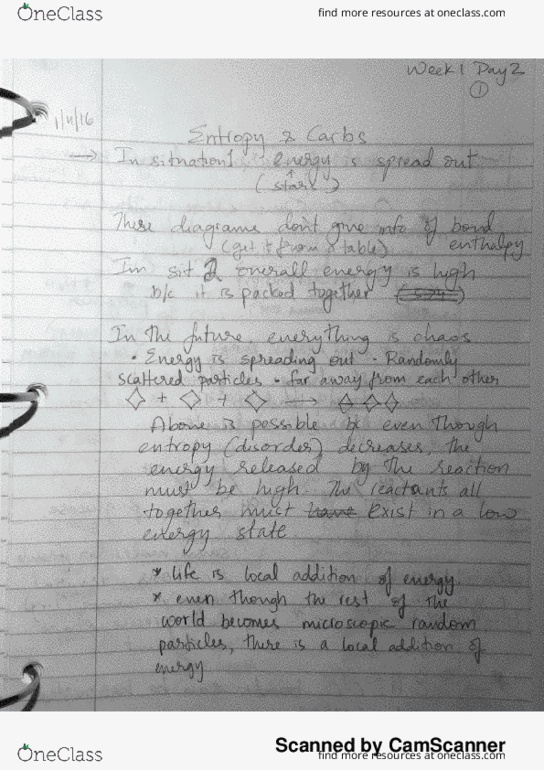 OneClass
find more resources at oneclass.com
Week 1 Day 2
1
1/4/16
Entropy & Carbs
→ In situation 1 energy is spread out
(stark)
These diagrams don't give info of bond
(get it from a table) enthalpy
Im sit 2 overall energy is high
b/c it is packed together
In the future, everything is chaos
• Energy is spreading out • Randomly
scattered particles • far away from each other
+ + →
Above is possible bc even though
entropy (disorder) decreases, the
energy released by the reaction
must be high. The reactants all
together must have exist in a low
energy state
* life is local addition of energy.
* even though the rest of the
world becomes microscopic random
particles, there is a local addition of
energy
Scanned by CamScanner
OneClass
find more resources at oneclass.com